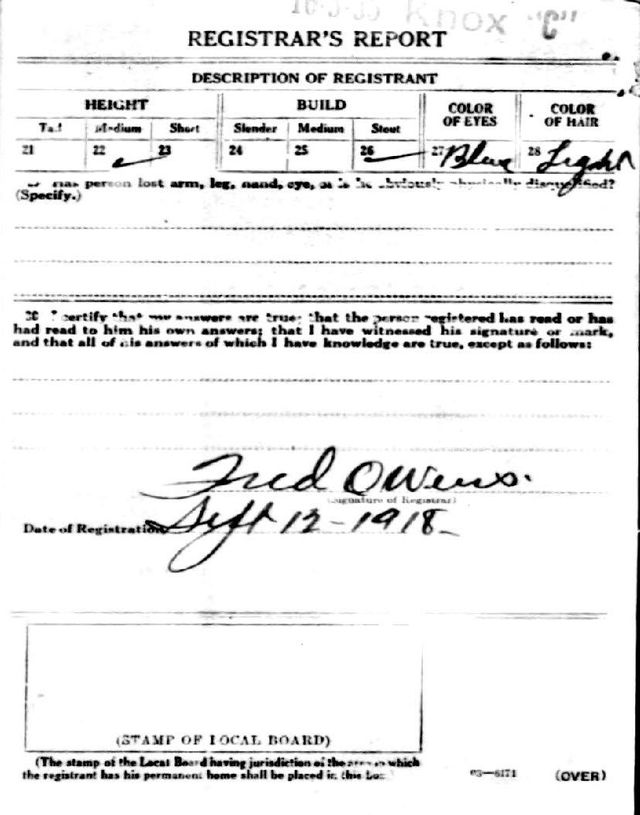 Knox "C"
REGISTRAR'S REPORT
DESCRIPTION OF REGISTRANT
HEIGHT BUILD COLOR OF EYES COLOR OF HAIR
Tall Medium Short Slender Medium Stout
21 22 ✓ 23 24 25 26 ✓ 27 Blue 28 Light
Has person lost arm, leg, hand, eye, or is he obviously physically disqualified?
(Specify.)
30 I certify that my answers are true; that the person registered has read or has
had read to him his own answers; that I have witnessed his signature or mark,
and that all of his answers of which I have knowledge are true, except as follows:
Fred Owens.
(Signature of Registrar)
Date of Registration Sept 12-1918-
(STAMP OF LOCAL BOARD)
(The stamp of the Local Board having jurisdiction of the area in which
the registrant has his permanent home shall be placed in this box.)
03—6171 (OVER)